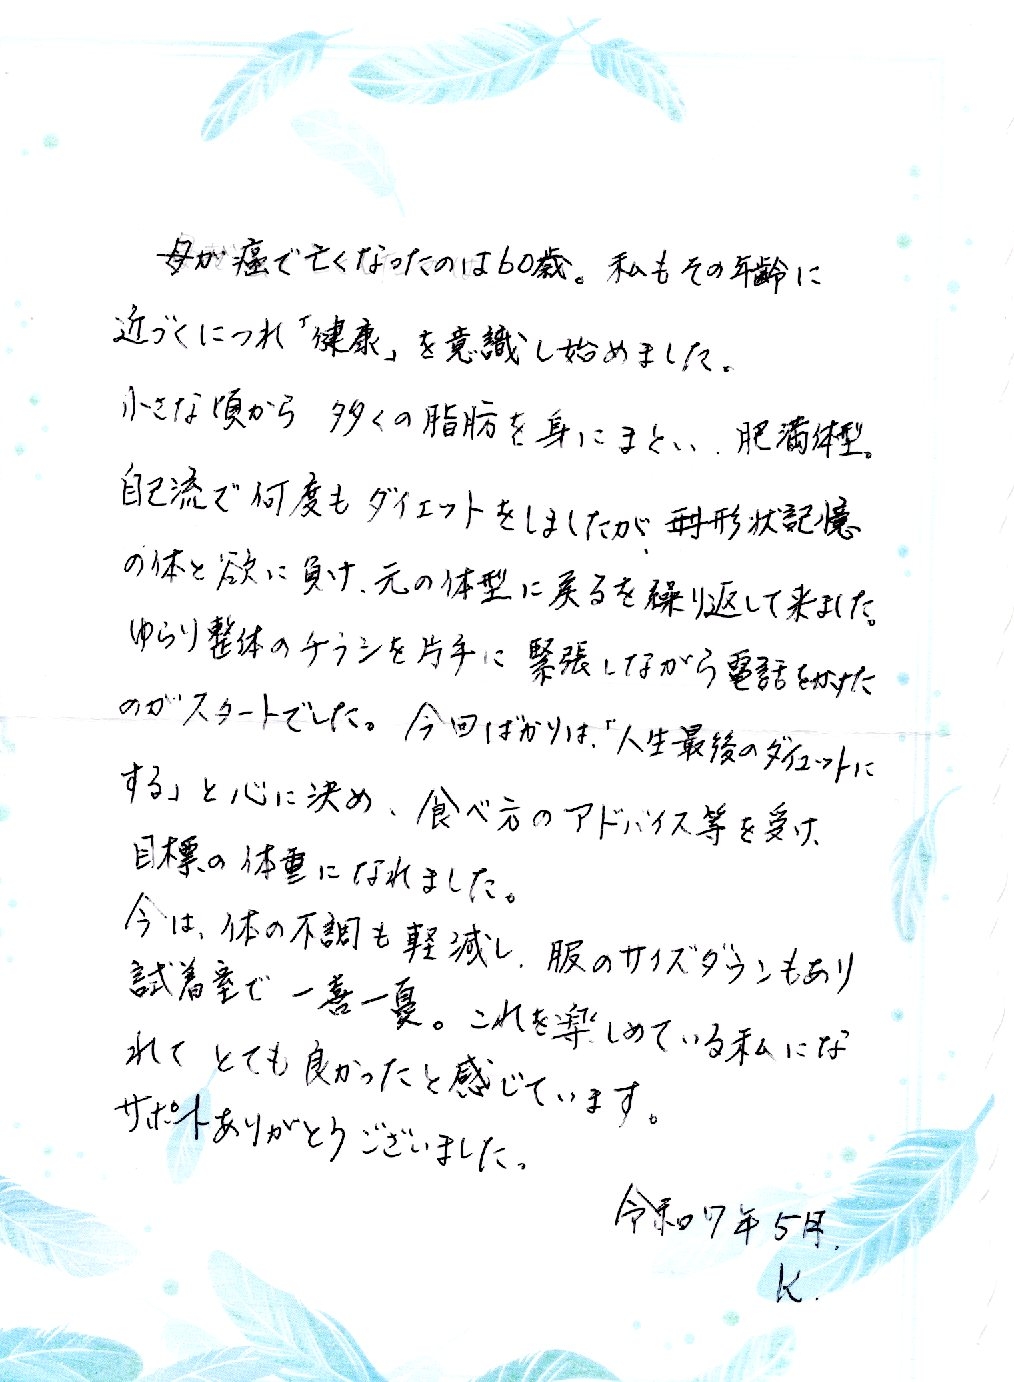 母が癌で亡くなったのは60歳。私もその年齢に
近づくにつれ「健康」を意識し始めました。
小さな頃から 多くの脂肪を身にまとい、肥満体型。
自己流で何度もダイエットをしましたが、形状記憶
の体と欲に負け、元の体型に戻るを繰り返して来ました。
ゆらり整体のチラシを片手に 緊張しながら電話をかけた
のがスタートでした。今回ばかりは、「人生最後のダイエットに
する」と心に決め、食べ方のアドバイス等を受け、
目標の体重になれました。
今は、体の不調も軽減し、服のサイズダウンもあり
試着室で 一喜一憂。これを楽しめている私にな
れて とても良かったと感じています。
サポートありがとうございました。
令和7年5月.
K.